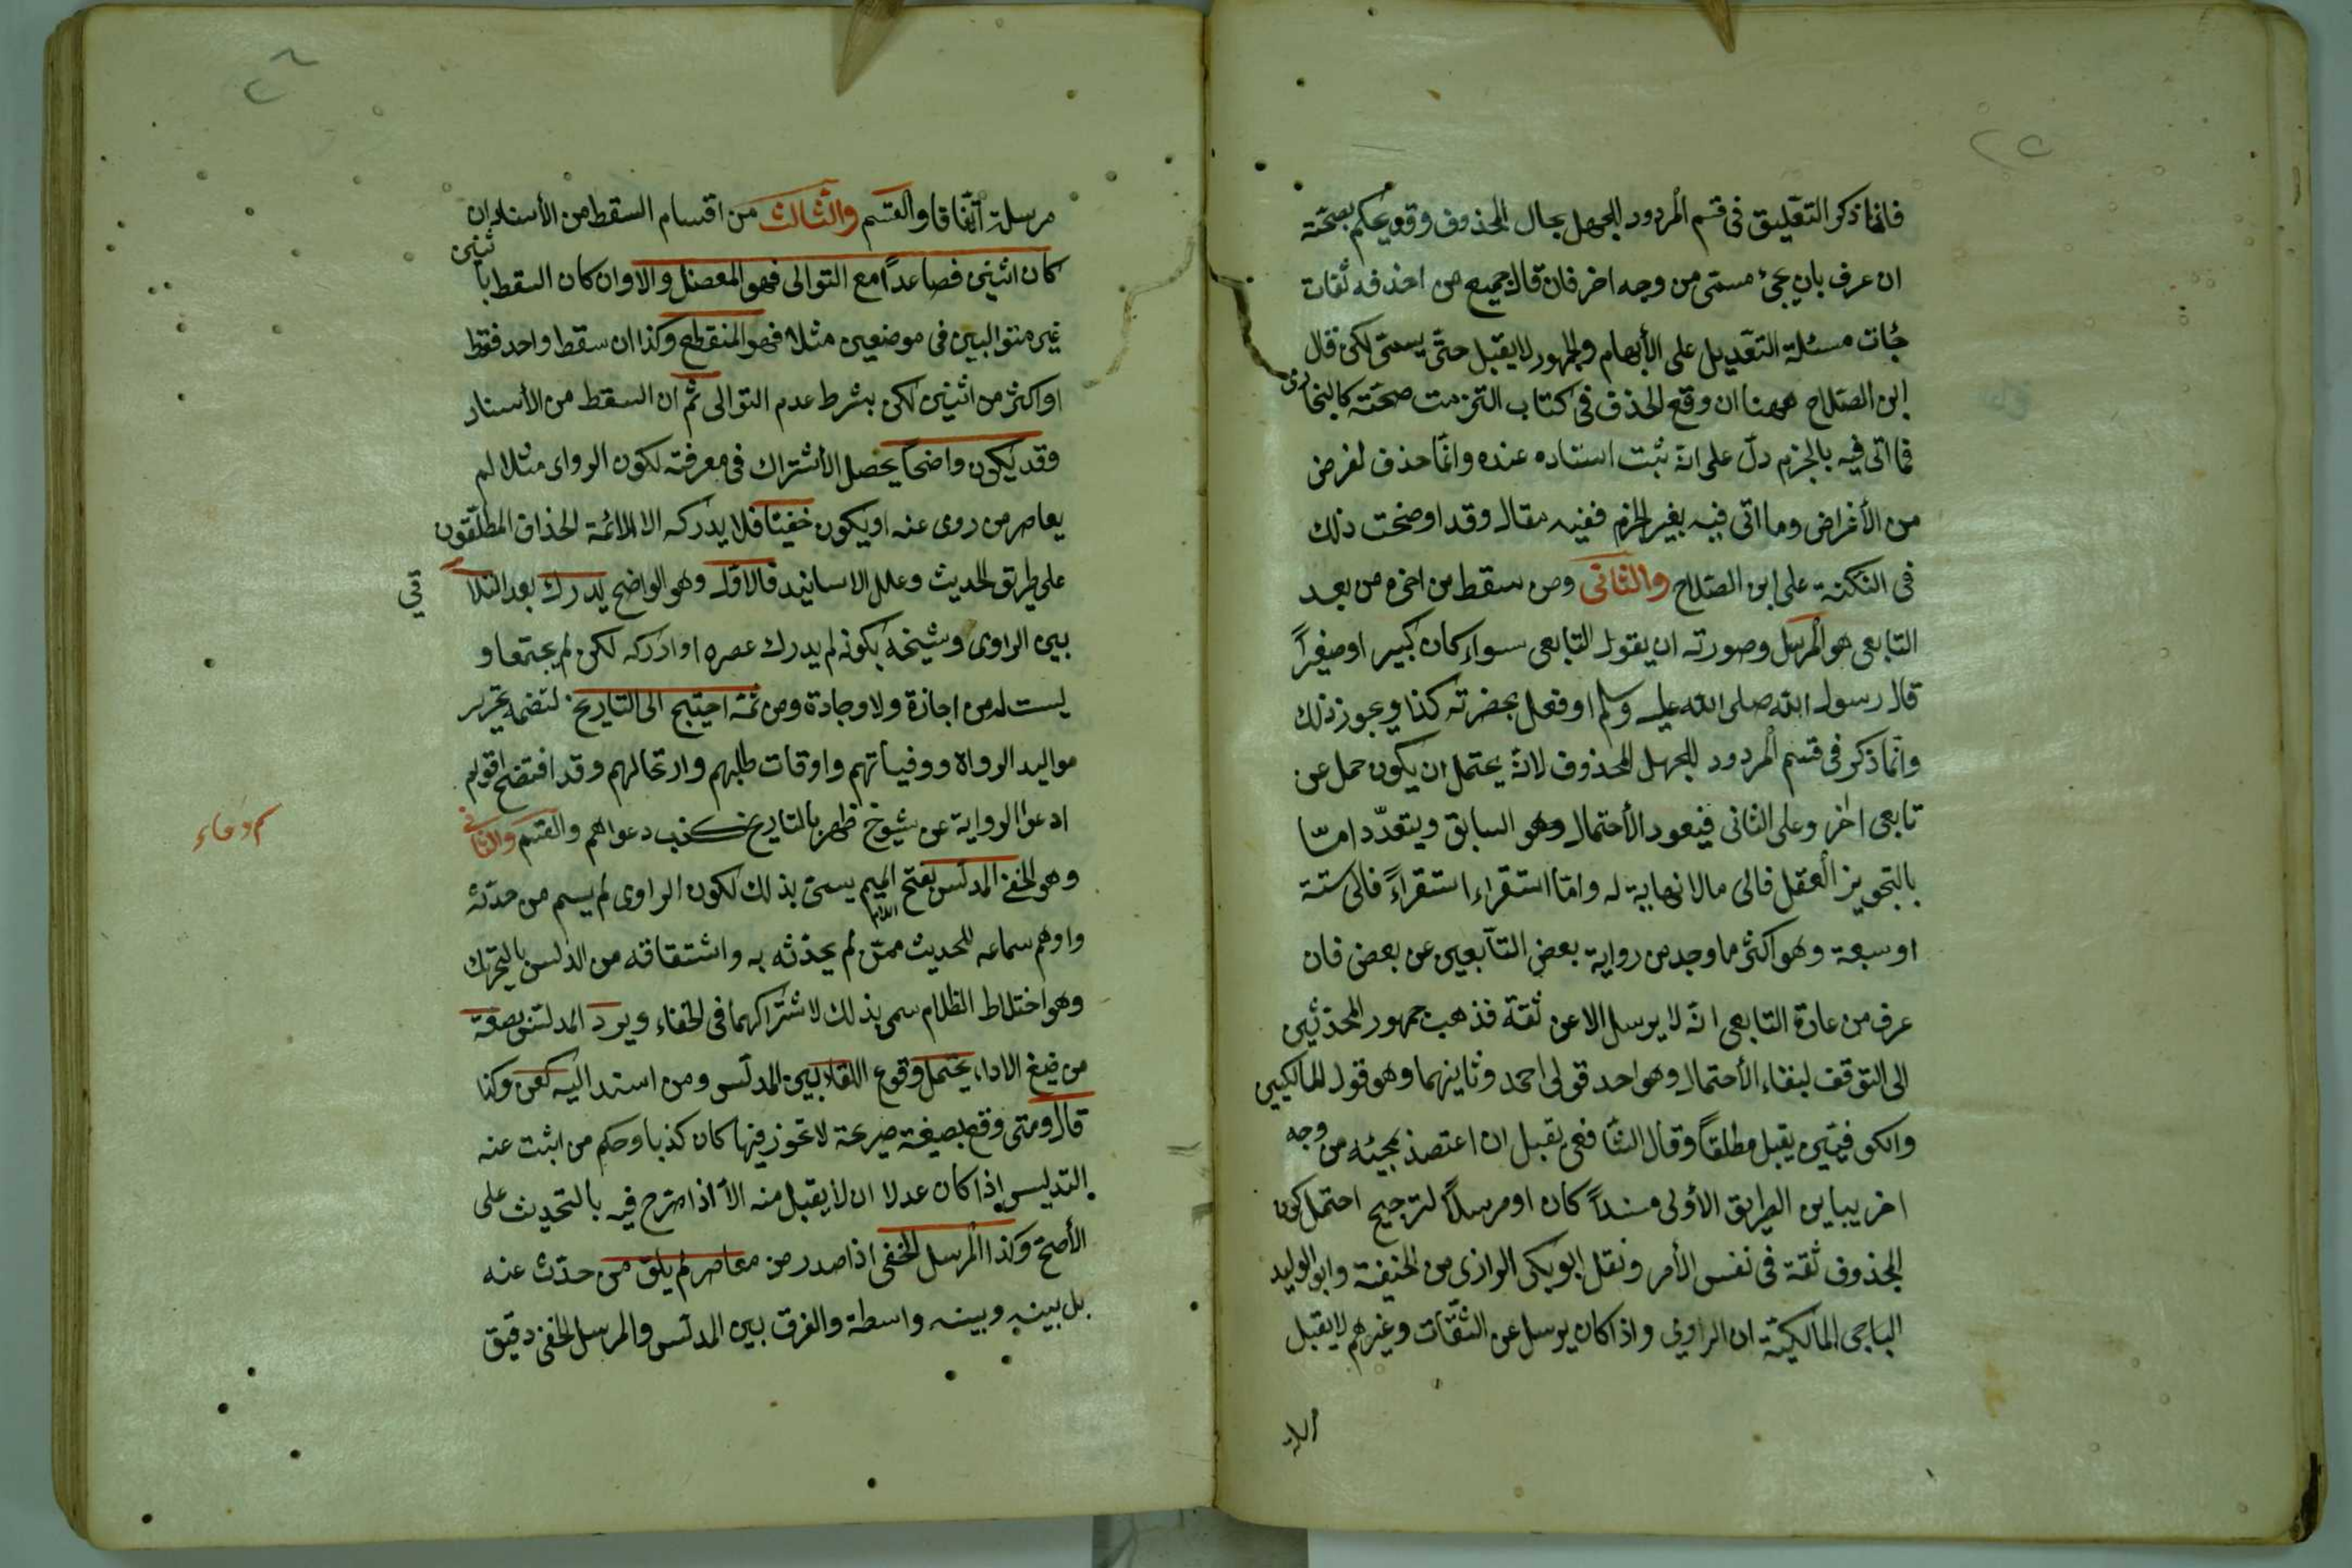 ٢٥
فانما ذكر التعليق فى قسم المردود للجهل بحال المحذوف وقد يحكم بصحّته
ان عرف بان يجئ مسمّى من وجه اخر فان قال جميع من احذفه ثقات
جئات مسئلة التعديل على الأبهام والجمهور لا يقبل حتّى يسمّى لكن قال
ابن الصّلاح ههنا ان وقع الحذف فى كتاب التزمت صحّته كالبخارى
فما اتى فيه بالجزم دلّ على انّه ثبت اسناده عنده وانّما حذف لغرض
من الأغراض وما اتى فيه بغير الجزم ففيه مقال وقد اوضحت ذلك
فى النكتة على ابن الصّلاح والثانى ومن سقط من اخره من بعد
التابعى هو المرسل وصورته ان يقول التابعى سواء كان كبير او صغيراً
قال رسول الله صلى الله عليه وسلم او فعل بحضرته كذا ويجوز ذلك
وانّما ذكر فى قسم المردود للجهل المحذوف لانّه يحتمل ان يكون حمل عن
تابعى اخر وعلى الثانى فيعود الأحتمال وهو السابق ويتعدّد امّا
بالتجويز العقل فالى مالا نهاية له وامّا استقراء استقراءً فالى ستة
او سبعة وهو اكثر ما وجد من رواية بعض التآبعين عن بعض فان
عرف من عادة التابعى انّه لا يرسل الا عن ثقة فذهب جمهور المحدّثين
الى التوقف لبقاء الأحتمال وهو احد قولى احمد وثاينهما وهو قول المالكيين
والكوفيّين يقبل مطلقاً وقال الشافعى يقبل ان اعتضد بمجيئه من وجه
اخر يباين الطريق الأولى مسنداً كان او مرسلاً لترجيح احتمل كون
المحذوف ثقة فى نفس الأمر ونقل ابو بكر الرازى من الحنيفة وابو الوليد
الباجى المالكيّة ان الراوى واذا كان يرسل عن الثقّات وغيرهم لا يقبل
٢٦
مرسلة اتّفاقا والقسم والثالث من اقسام السقط من الأسناد ان
كان اثنين فصاعداً مع التوالى فهو المعضل والا وان كان السقط باثنين
غير متواليين فى موضعين مثلا فهو المنقطع وكذا ان سقط واحد فقط
او اكثر من اثنين لكن بشرط عدم التوالى ثم ان السقط من الأسناد
وقد يكون واضحاً يحصل الأشتراك فى معرفته لكون الرواى مثلا لم
يعاصر من روى عنه او يكون خفيّا فلا يدركه الا الائمة الحذاق المطلّقون
على طريق الحديث وعلل الاسانيد فالاول وهو الواضح يدرك بعد التلاقي
بين الراوى وشيخه بكونه لم يدرك عصره او ادركه لكن لم يجتمعا و
ليست له من اجازة ولا وجادة ومن ثمّه احتيج الى التاريخ لتضمنه تحرير
مواليد الرواة ووفياتهم واوقات طلبهم وارتحالهم وقد افتضح اقوام
ادعوا الرواية عن شيوخ ظهر بالتاريخ كذب دعواهم والقسم والثانى
وهو الخفى المدلّس بفتح الميم يسمّى بذلك لكون الراوى لم يسم من حدّثه
واوهم سماعه للحديث ممّن لم يحدّثه به واشتقاقه من الدلس بالتحريك
وهو اختلاط الظلام سمى بذلك لاشتراكهما فى الخفاء ويرد المدلّس بصيغة
من صيغ الاداء يحتمل وقوع اللقاء بين المدلّس ومن اسند اليه كعن وكذا
قال ومتى وقع بصيغة صريحة لا تجوز فيها كان كذبا وحكم من اثبت عنه
التدليس اذا كان عدلا ان لا يقبل منه الاّ اذا صرّح فيه بالتحديث على
الأصحّ وكذا المرسل الخفى اذا صدر من معاصر لم يلق من حدّث عنه
بل بينه وبينه واسطة والفرق بين المدلّس والمرسل الخفى دقيق